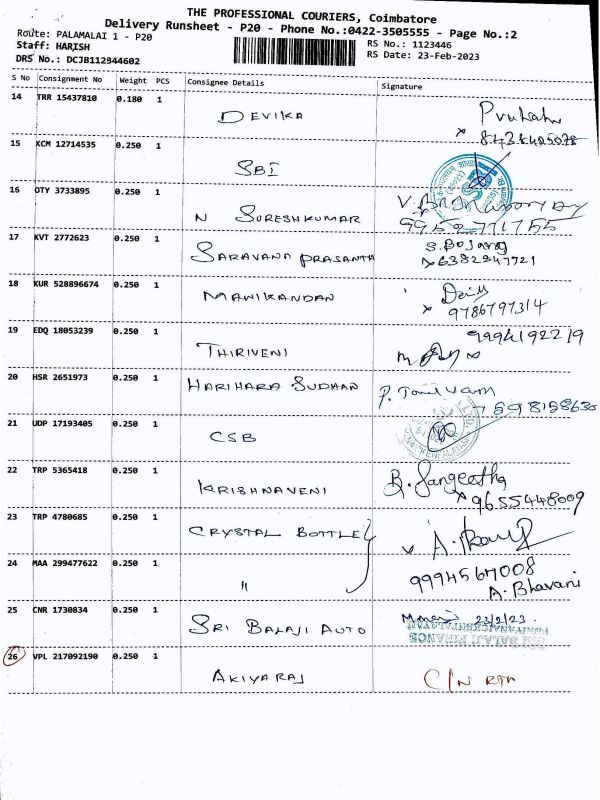 THE PROFESSIONAL COURIERS, Coimbatore
Delivery Runsheet - P20 - Phone No.:0422-3505555 - Page No.:2
Route: PALAMALAI 1 - P20
RS No.: 1123446
Staff: HARISH
RS Date: 23-Feb-2023
DRS No.: DCJB112944602
S No Consignment No Weight PCS Consignee Details Signature
14 TRR 15437810 0.180 1
DEVIKA
15 KCM 12714535 0.250 1
SBI
16 OTY 3733895 0.250 1
N SURESHKUMAR
9952771755
17 KVT 2772623 0.250 1
SARAVANA PRASANTH
6382247721
18 KUR 528896674 0.250 1
MANIKANDAN
9786797314
19 EDQ 18053239 0.250 1
THIRIVENI
9994192219
20 HSR 2651973 0.250 1
HARIHARA SUDHAN
21 UDP 17193405 0.250 1
CSB
22 TRP 5365418 0.250 1
KRISHNAVENI
B. Sangeetha
9655448009
23 TRP 4780685 0.250 1
CRYSTAL BOTTLE
24 MAA 299477622 0.250 1
"
9994567008
A. Bhavani
25 CNR 1730834 0.250 1
SRI BALAJI AUTO
23/2/23
SRI BALAJI FINANCE
26 VPL 217092190 0.250 1
AKIYARAJ
C/N RTA